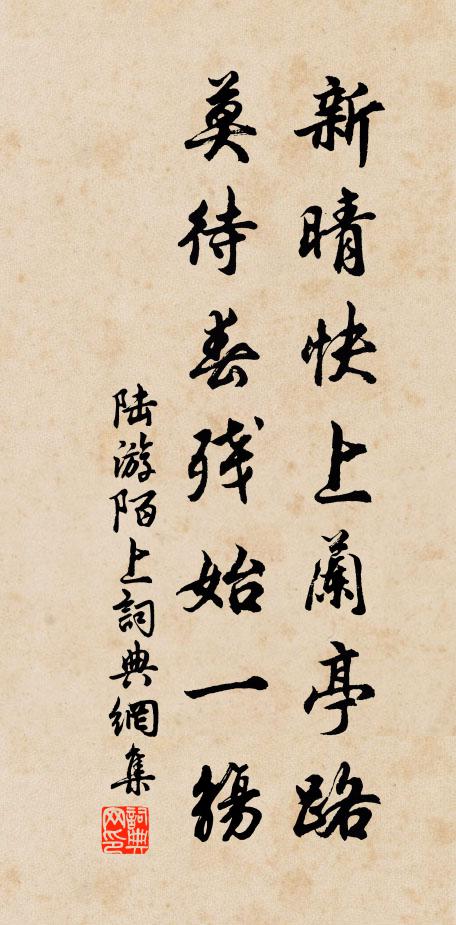 新晴快上蘭亭路
莫待春残始一觴
陆游陌上詞典網集
詞典网印